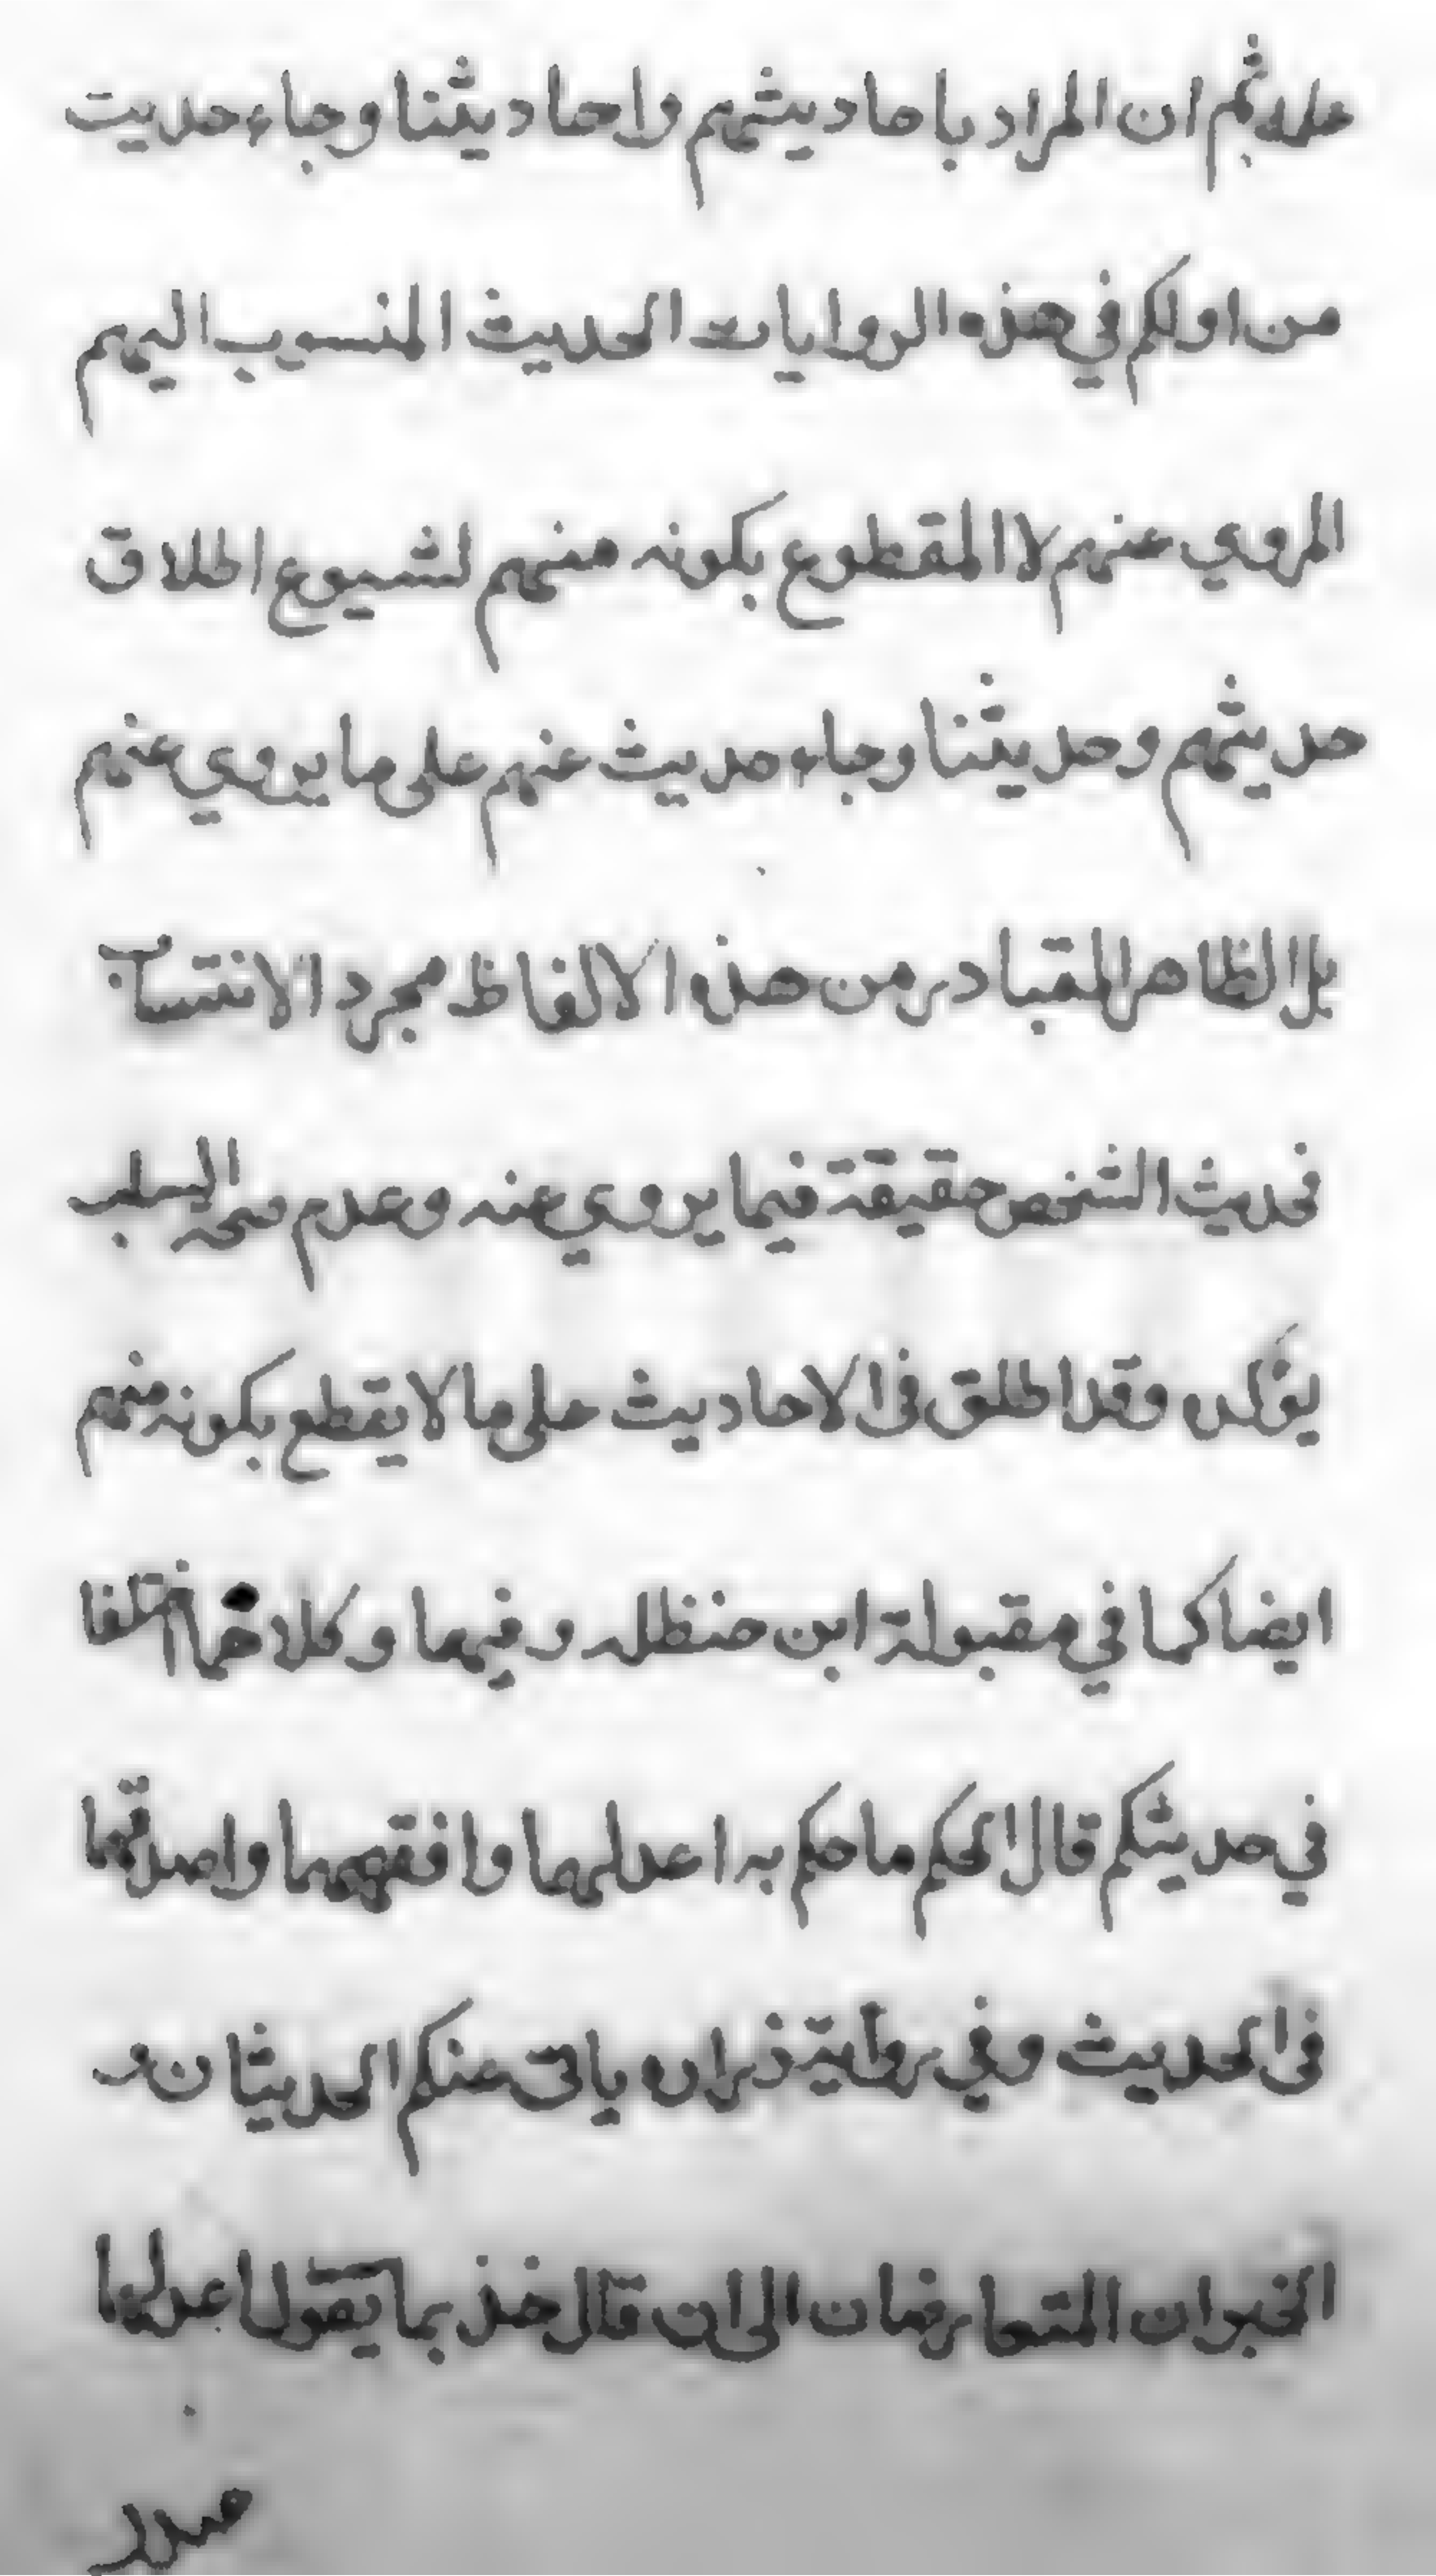 عليه ثم ان المراد باحاديثهم واحاديثنا وجاء حديث
من اولكم في هذه الروايات الحديث المنسوب اليهم
المروي عنهم لا المقطوع بكونه منهم لشيوع اطلاق
حديثهم وحديثنا وجاء حديث عنهم على ما يروي عنهم
بل الظاهر المتبادر من هذه الالفاظ مجرد الانتساب
فحديث الشخص حقيقة فيما يروي عنه وعدم صحة السلب
يؤكده وقد اطلق فى الاحاديث على ما لا يقطع بكونه منهم
ايضا كما في مقبولة ابن حنظله وفيهما وكلاهما اختلفا
في حديثكم قال الحكم ما حكم به اعدلهما وافقههما واصدقهما
فى الحديث وفي رواية زراره ياتى عنكم الحديثان و
الخبران المتعارضان الى ان قال خذ بما يقول اعدلهما